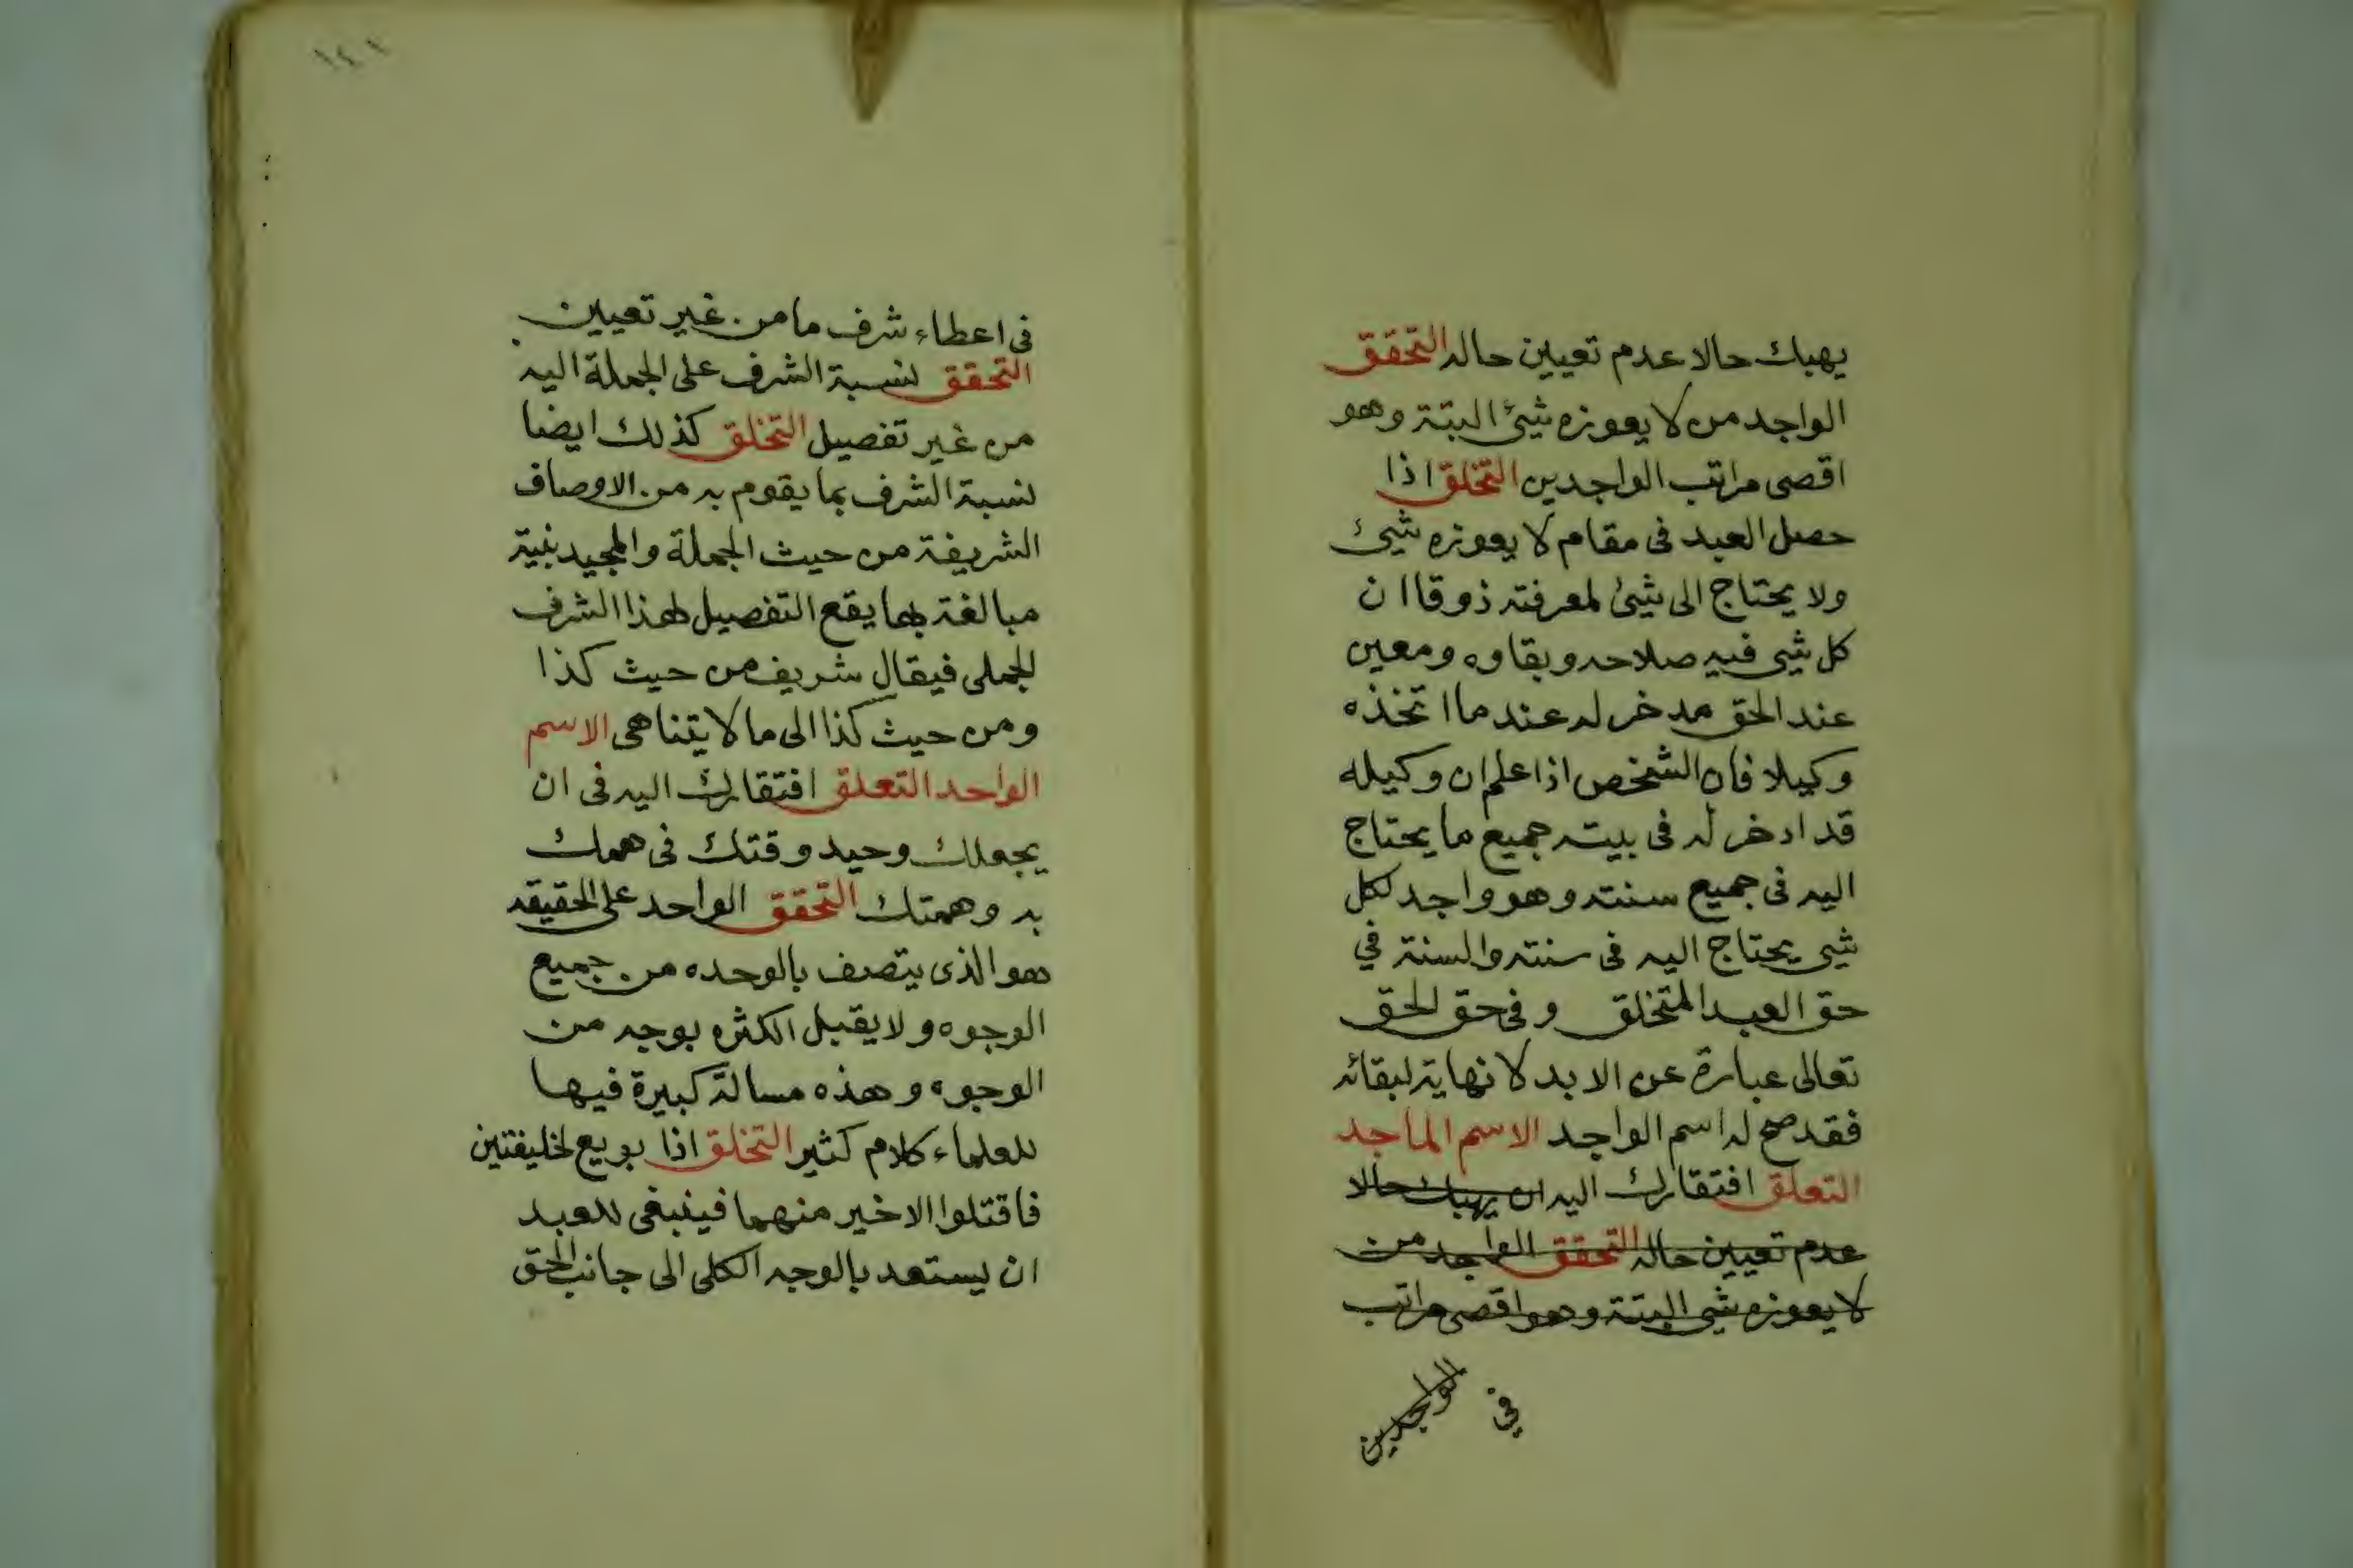 يهبك حالا عدم تعيين حاله التحقق
الواجد من لا يعوزه شيئ البتة وهو
اقصى مراتب الواجدين التخلق اذا
حصل العبد فى مقام لا يعوزه شيئ
ولا يحتاج الى شيئ لمعرفته ذوقا ان
كل شيى فيه صلاحه وبقاوه ومعين
عند الحق مدخر له عند ما اتخذه
وكيلا فان الشخص اذا علم ان وكيله
قد ادخر له فى بيته جميع ما يحتاج
اليه فى جميع سنته وهو واجد لكل
شيى يحتاج اليه فى سنته والسنة في
حق العبد المتخلق وفى حق الحق
تعالى عبارة عن الابد لا نهاية لبقائه
فقد صح له اسم الواجد الاسم الماجد
التعلق افتقارك اليه ان يهبك حالا
عدم تعيين حاله التحقق الواجد من
لا يعوزه شيى البتة وهو اقصى مراتب
الواجدين
في
١٤١
فى اعطاء شرف ما من غير تعيين
التحقق لنسبة الشرف على الجملة اليه
من غير تفصيل التخلق كذلك ايضا
لنسبة الشرف بما يقوم به من الاوصاف
الشريفة من حيث الجملة والمجيد بنية
مبالغة بها يقع التفصيل لهذا الشرف
الجملى فيقال شريف من حيث كذا
ومن حيث كذا الى ما لا يتناهى الاسم
الواحد التعلق افتقارك اليه فى ان
يجعلك وحيد وقتك فى همك
به وهمتك التحقق الواحد على الحقيقه
هو الذى يتصف بالوحده من جميع
الوجوه ولا يقبل الكثره بوجه من
الوجوه وهذه مسالة كبيرة فيها
للعلماء كلام كثير التخلق اذا بويع لخليفتين
فاقتلوا الاخير منهما فينبغى للعبد
ان يستعد بالوجه الكلى الى جانب الحق